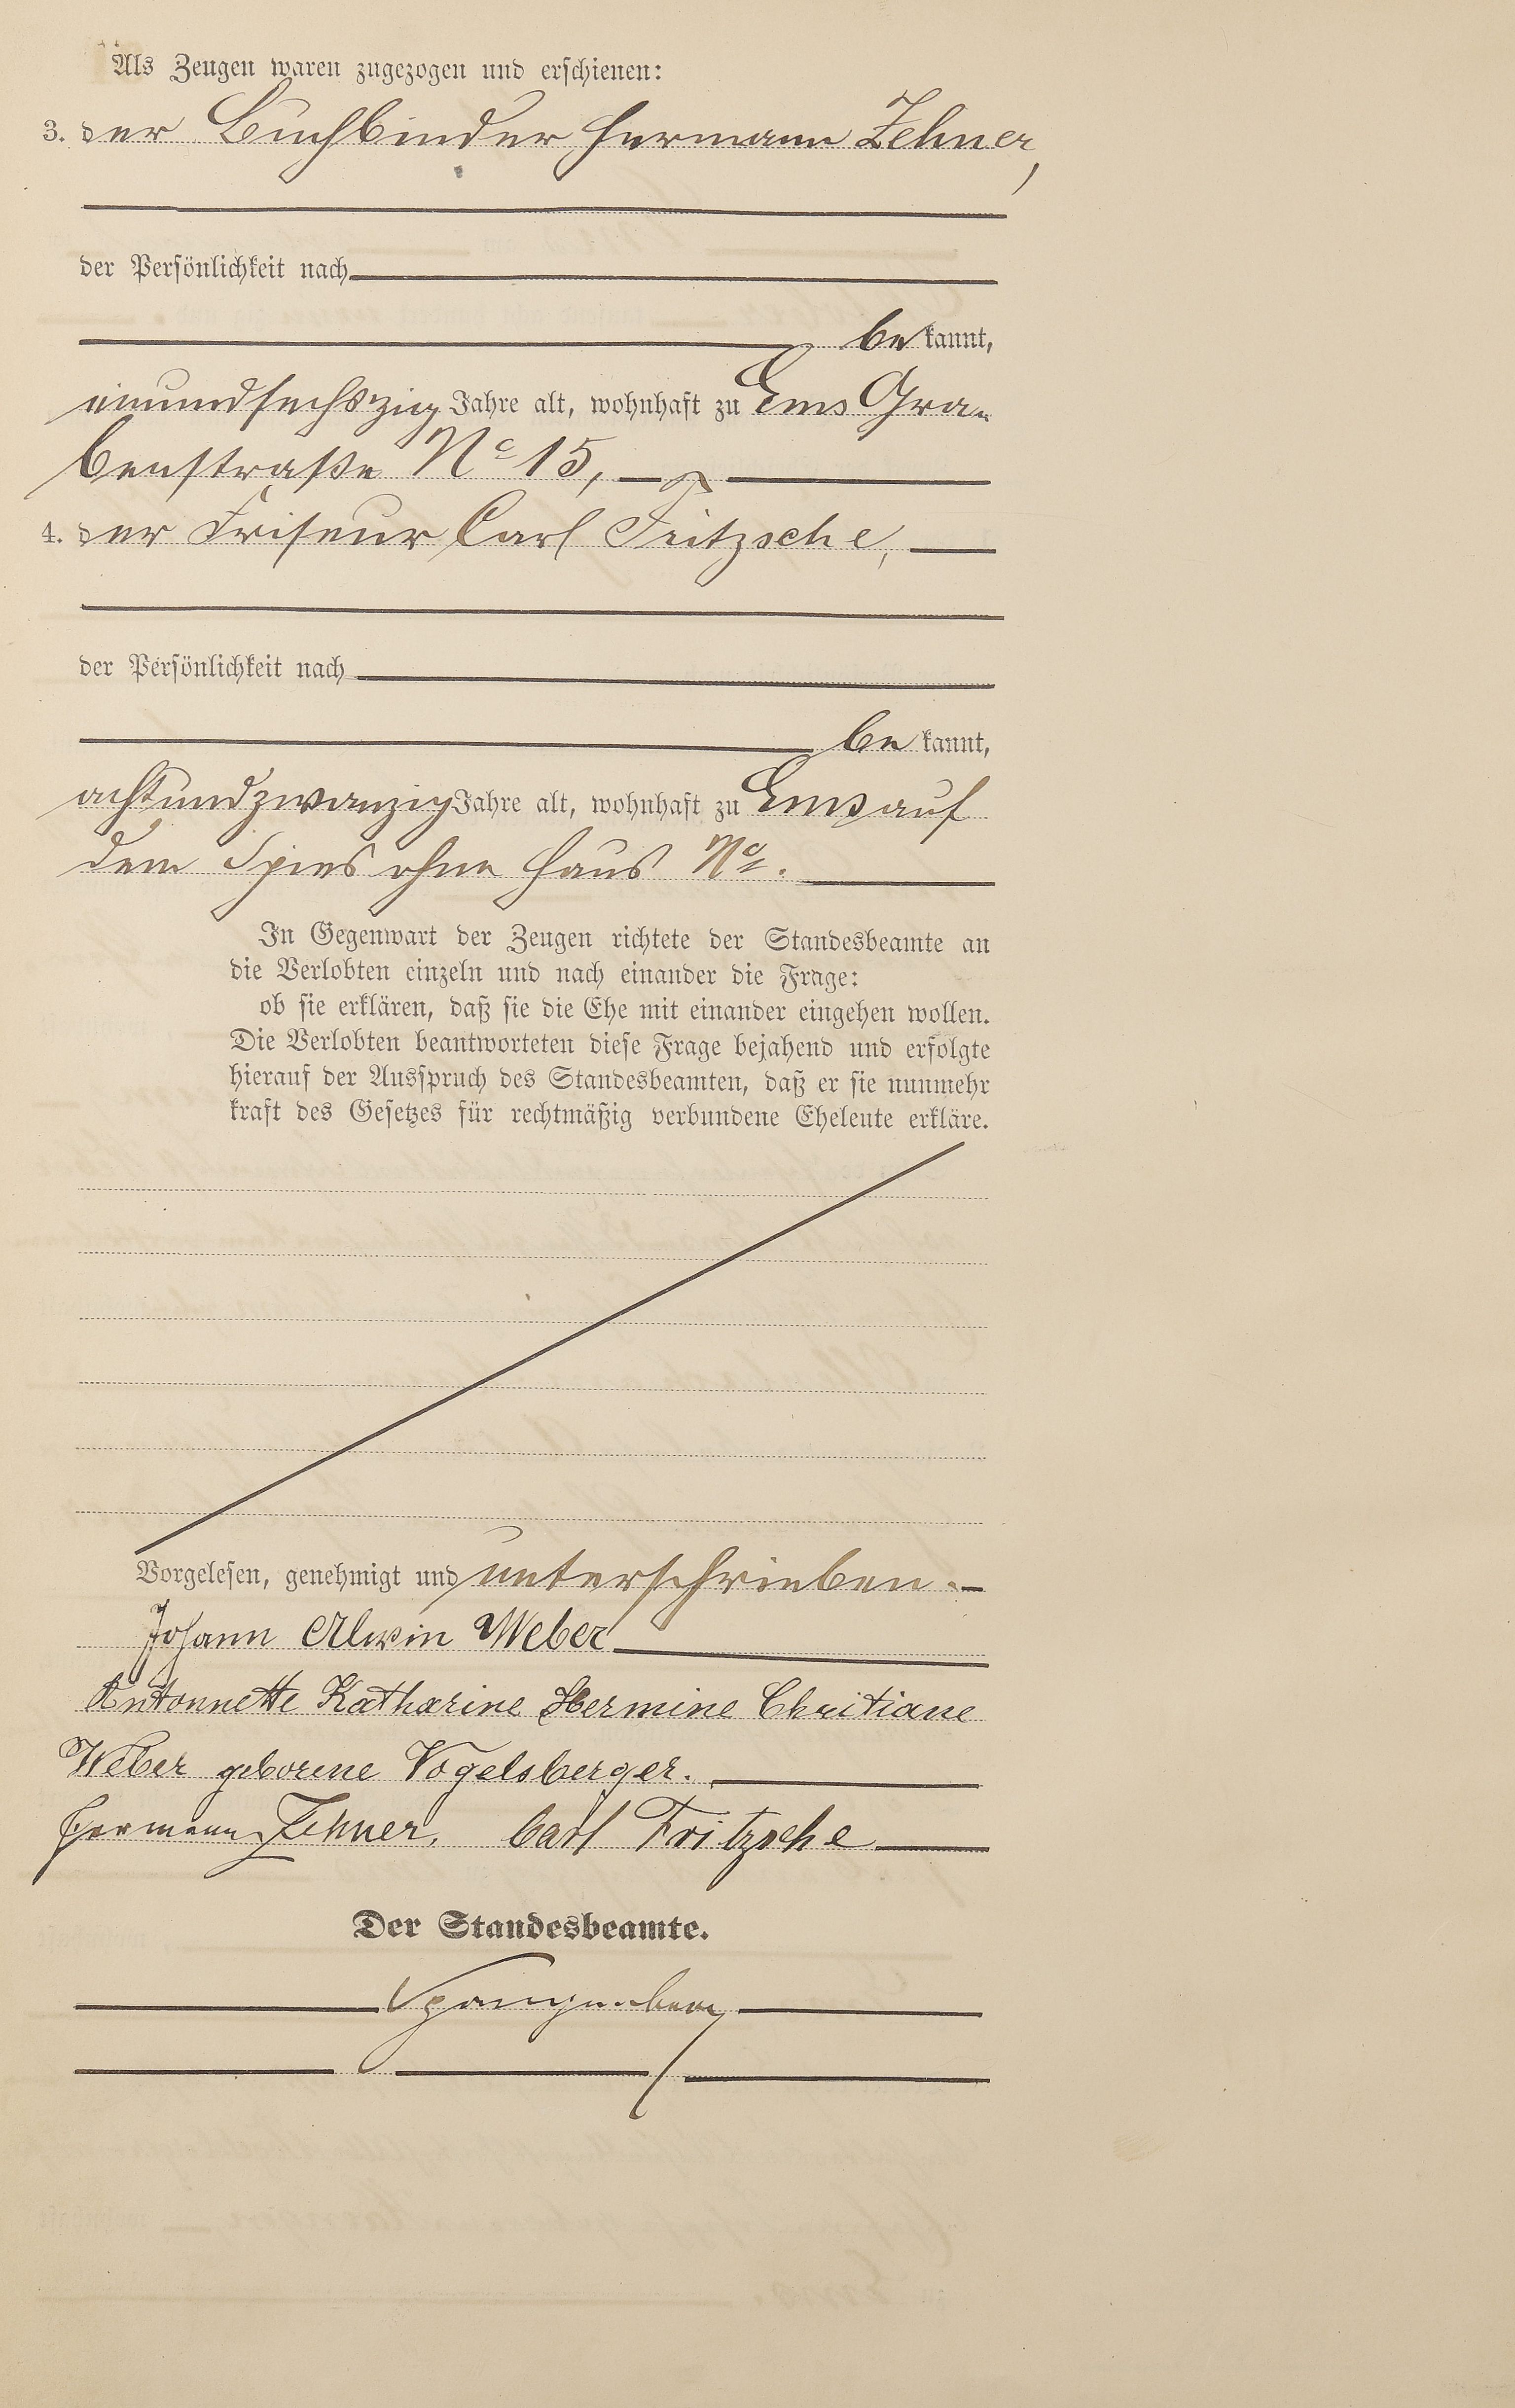 Als Zeugen waren zugezogen und erschienen:
3. der Buchbinder Hermann Zehner,
der Persönlichkeit nach
be kannt,
einundsechszig Jahre alt, wohnhaft zu Ems Gra-
benstraße No 15,
4. der Friseur Carl Fritzsche,
der Persönlichkeit nach
be kannt,
achtundzwanzig Jahre alt, wohnhaft zu Ems auf
dem Spies ohne Haus No.
In Gegenwart der Zeugen richtete der Standesbeamte an
die Verlobten einzeln und nach einander die Frage:
ob sie erklären, daß sie die Ehe mit einander eingehen wollen.
Die Verlobten beantworteten diese Frage bejahend und erfolgte
hierauf der Ausspruch des Standesbeamten, daß er sie nunmehr
kraft des Gesetzes für rechtmäßig verbundene Eheleute erkläre.
Vorgelesen, genehmigt und unterschrieben.
Johann Alwin Weber
Antonnette Katharine Hermine Chritiane
Weber geborene Vogelsberger.
Hermann Zehner. Carl Fritzsche
Der Standesbeamte.
Spangenberg